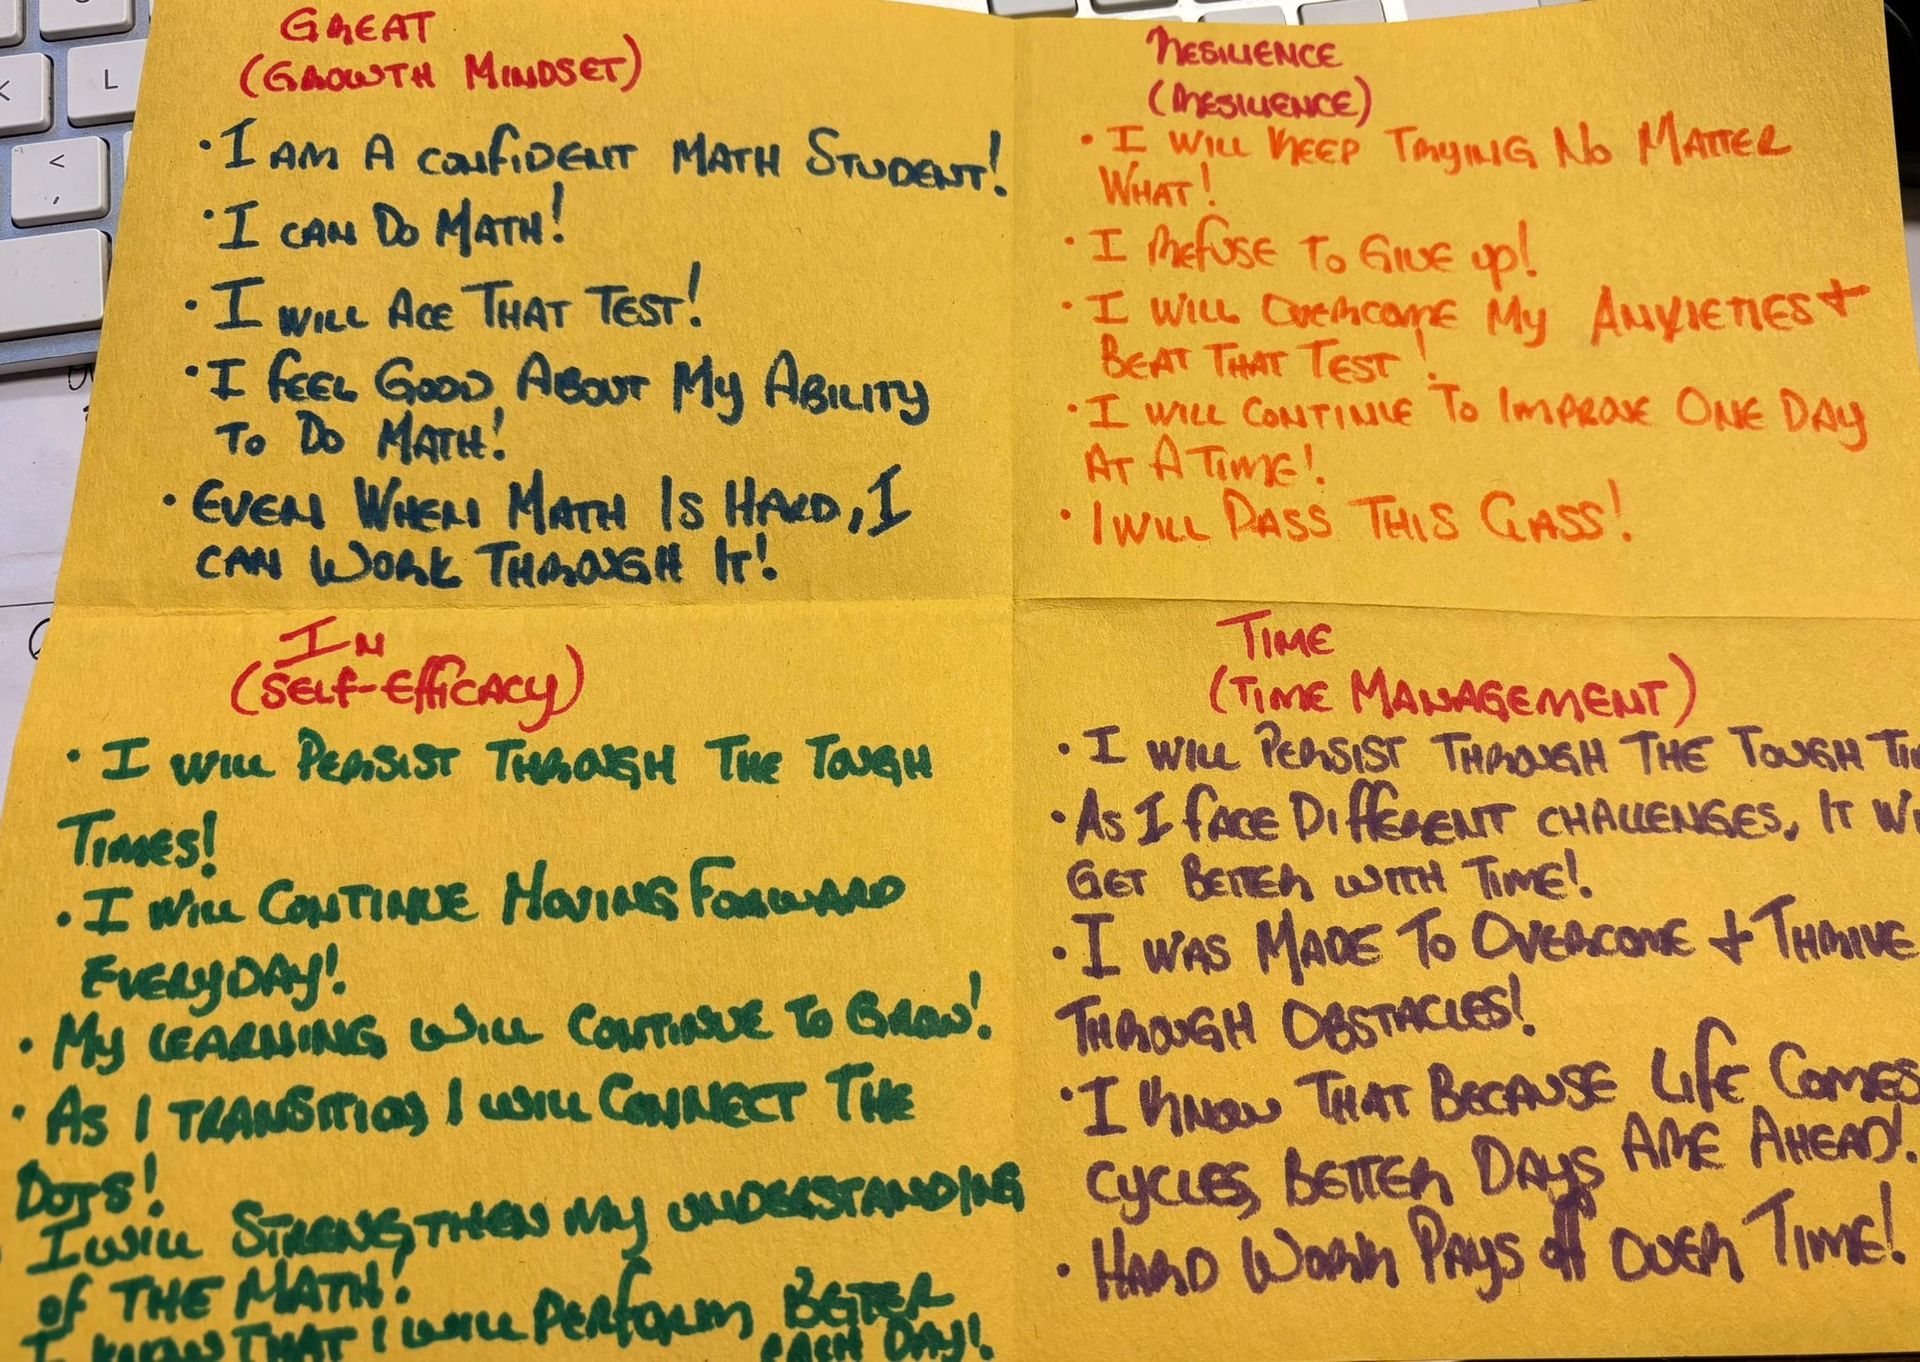 GREAT
(GROWTH MINDSET)
• I AM A CONFIDENT MATH STUDENT!
• I CAN DO MATH!
• I WILL ACE THAT TEST!
• I FEEL GOOD ABOUT MY ABILITY
TO DO MATH!
• EVEN WHEN MATH IS HARD, I
CAN WORK THROUGH IT!
RESILIENCE
(RESILIENCE)
• I WILL KEEP TRYING NO MATTER
WHAT!
• I REFUSE TO GIVE UP!
• I WILL OVERCOME MY ANXIETIES &
BEAT THAT TEST!
• I WILL CONTINUE TO IMPROVE ONE DAY
AT A TIME!
• I WILL PASS THIS CLASS!
IN
(SELF-EFFICACY)
• I WILL PERSIST THROUGH THE TOUGH
TIMES!
• I WILL CONTINUE MOVING FORWARD
EVERYDAY!
• MY LEARNING WILL CONTINUE TO GROW!
• AS I TRANSITION, I WILL CONNECT THE
DOTS!
I WILL STRENGTHEN MY UNDERSTANDING
OF THE MATH!
I KNOW THAT I WILL PERFORM BETTER
EACH DAY!
TIME
(TIME MANAGEMENT)
• I WILL PERSIST THROUGH THE TOUGH
• AS I FACE DIFFERENT CHALLENGES, IT
GET BETTER WITH TIME!
• I WAS MADE TO OVERCOME & THRIVE
THROUGH OBSTACLES!
• I KNOW THAT BECAUSE LIFE COMES
CYCLES, BETTER DAYS ARE AHEAD!
• HARD WORK PAYS OFF OVER TIME!
L
<
,